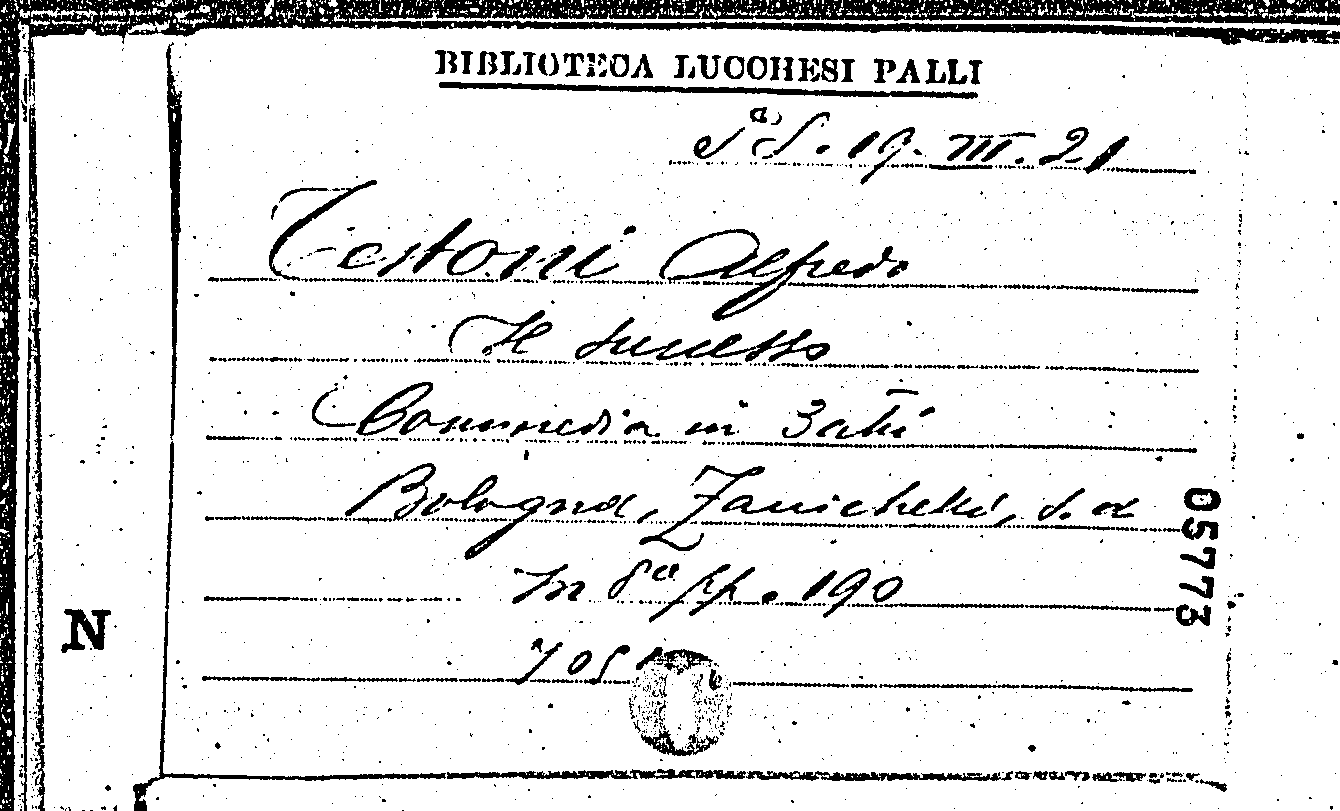 BIBLIOTECA LUCCHESI PALLI
Sª S. 19. III. 21
Testoni Alfredo
Il successo
Commedia in 3 atti
Bologna, Zanichelli, s. a
In 8° pp. 190
05773
N